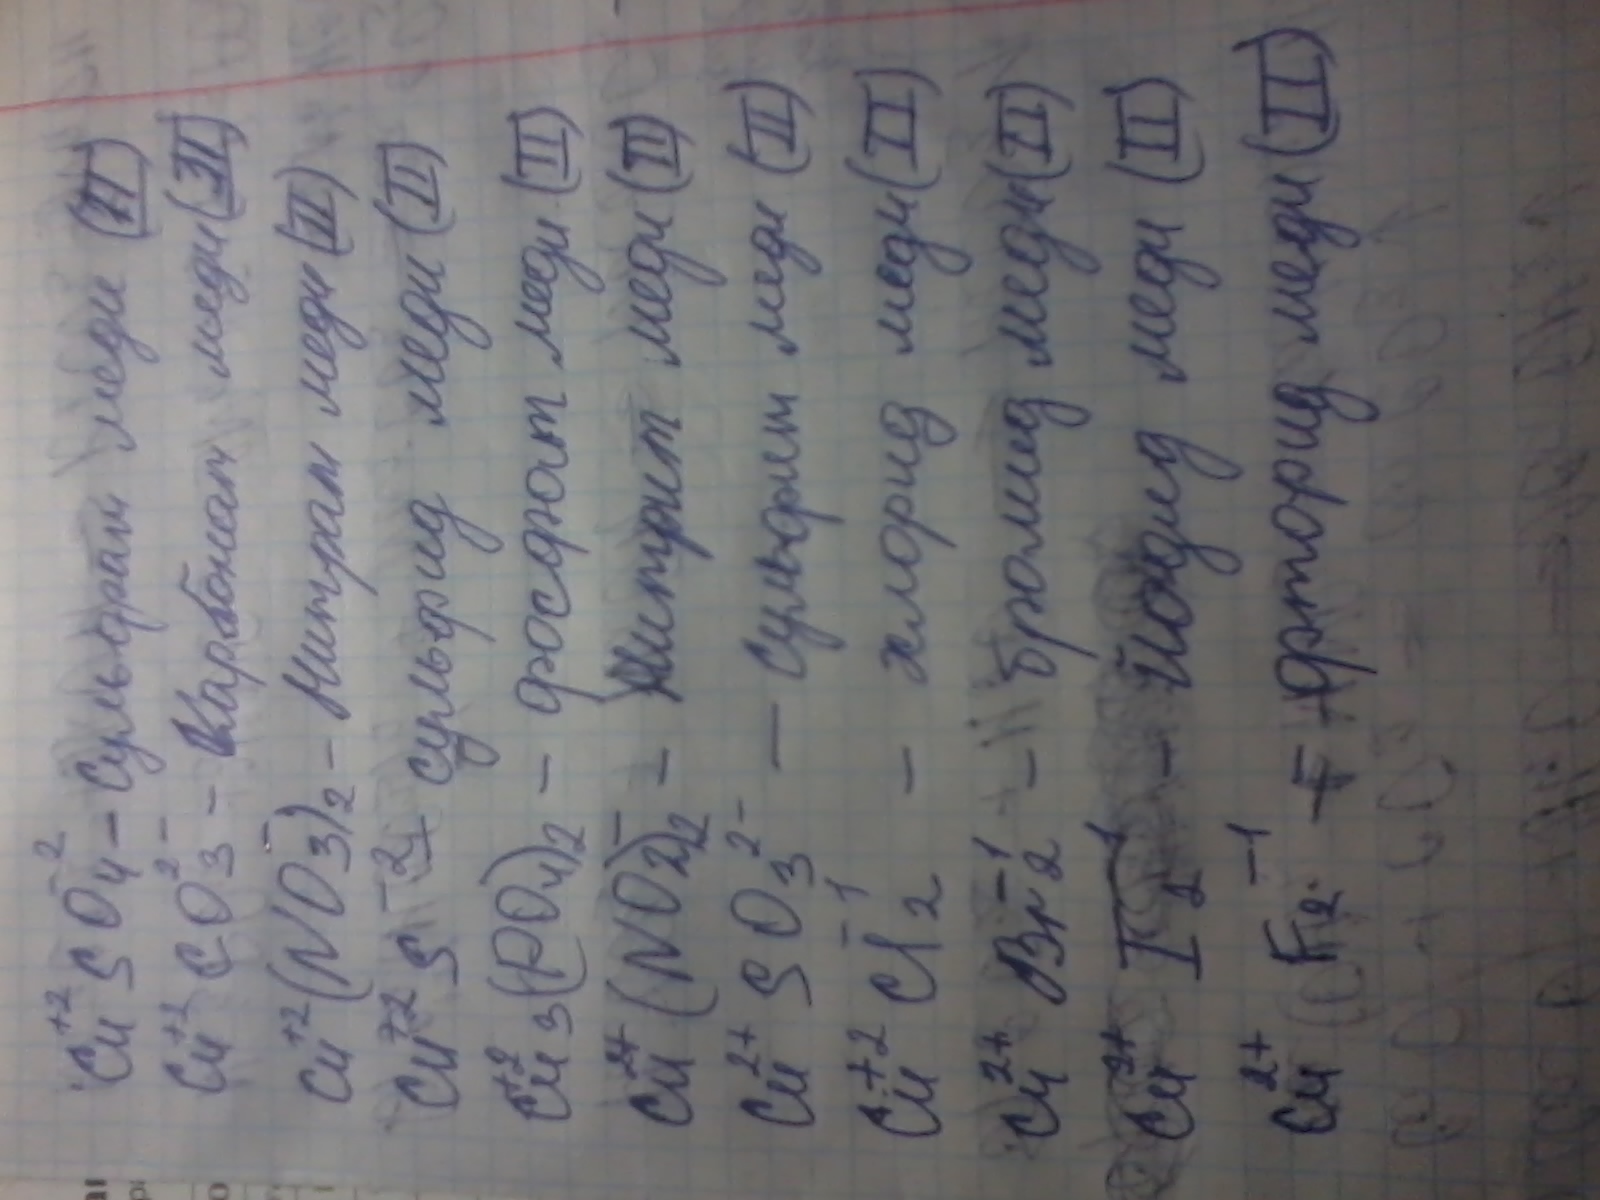 Cu⁺² SO₄⁻² – Сульфат меди (II)
Cu⁺² CO₃²⁻ – Карбонат меди (II)
Cu⁺² (NO₃)⁻₂ – Нитрат меди (II)
Cu⁺² S⁻² – сульфид меди (II)
Cu⁺²₃(PO₄)₂ – фосфат меди (II)
Cu²⁺ (NO₂)⁻₂ – Нитрит меди (II)
Cu²⁺ SO₃²⁻ – Сульфит меди (II)
Cu⁺² Cl₂⁻¹ – хлорид меди (II)
Cu²⁺ Br₂⁻¹ – бромид меди (II)
Cu²⁺ I₂⁻¹ – Йодид меди (II)
Cu²⁺ F₂⁻¹ – фторид меди (II)